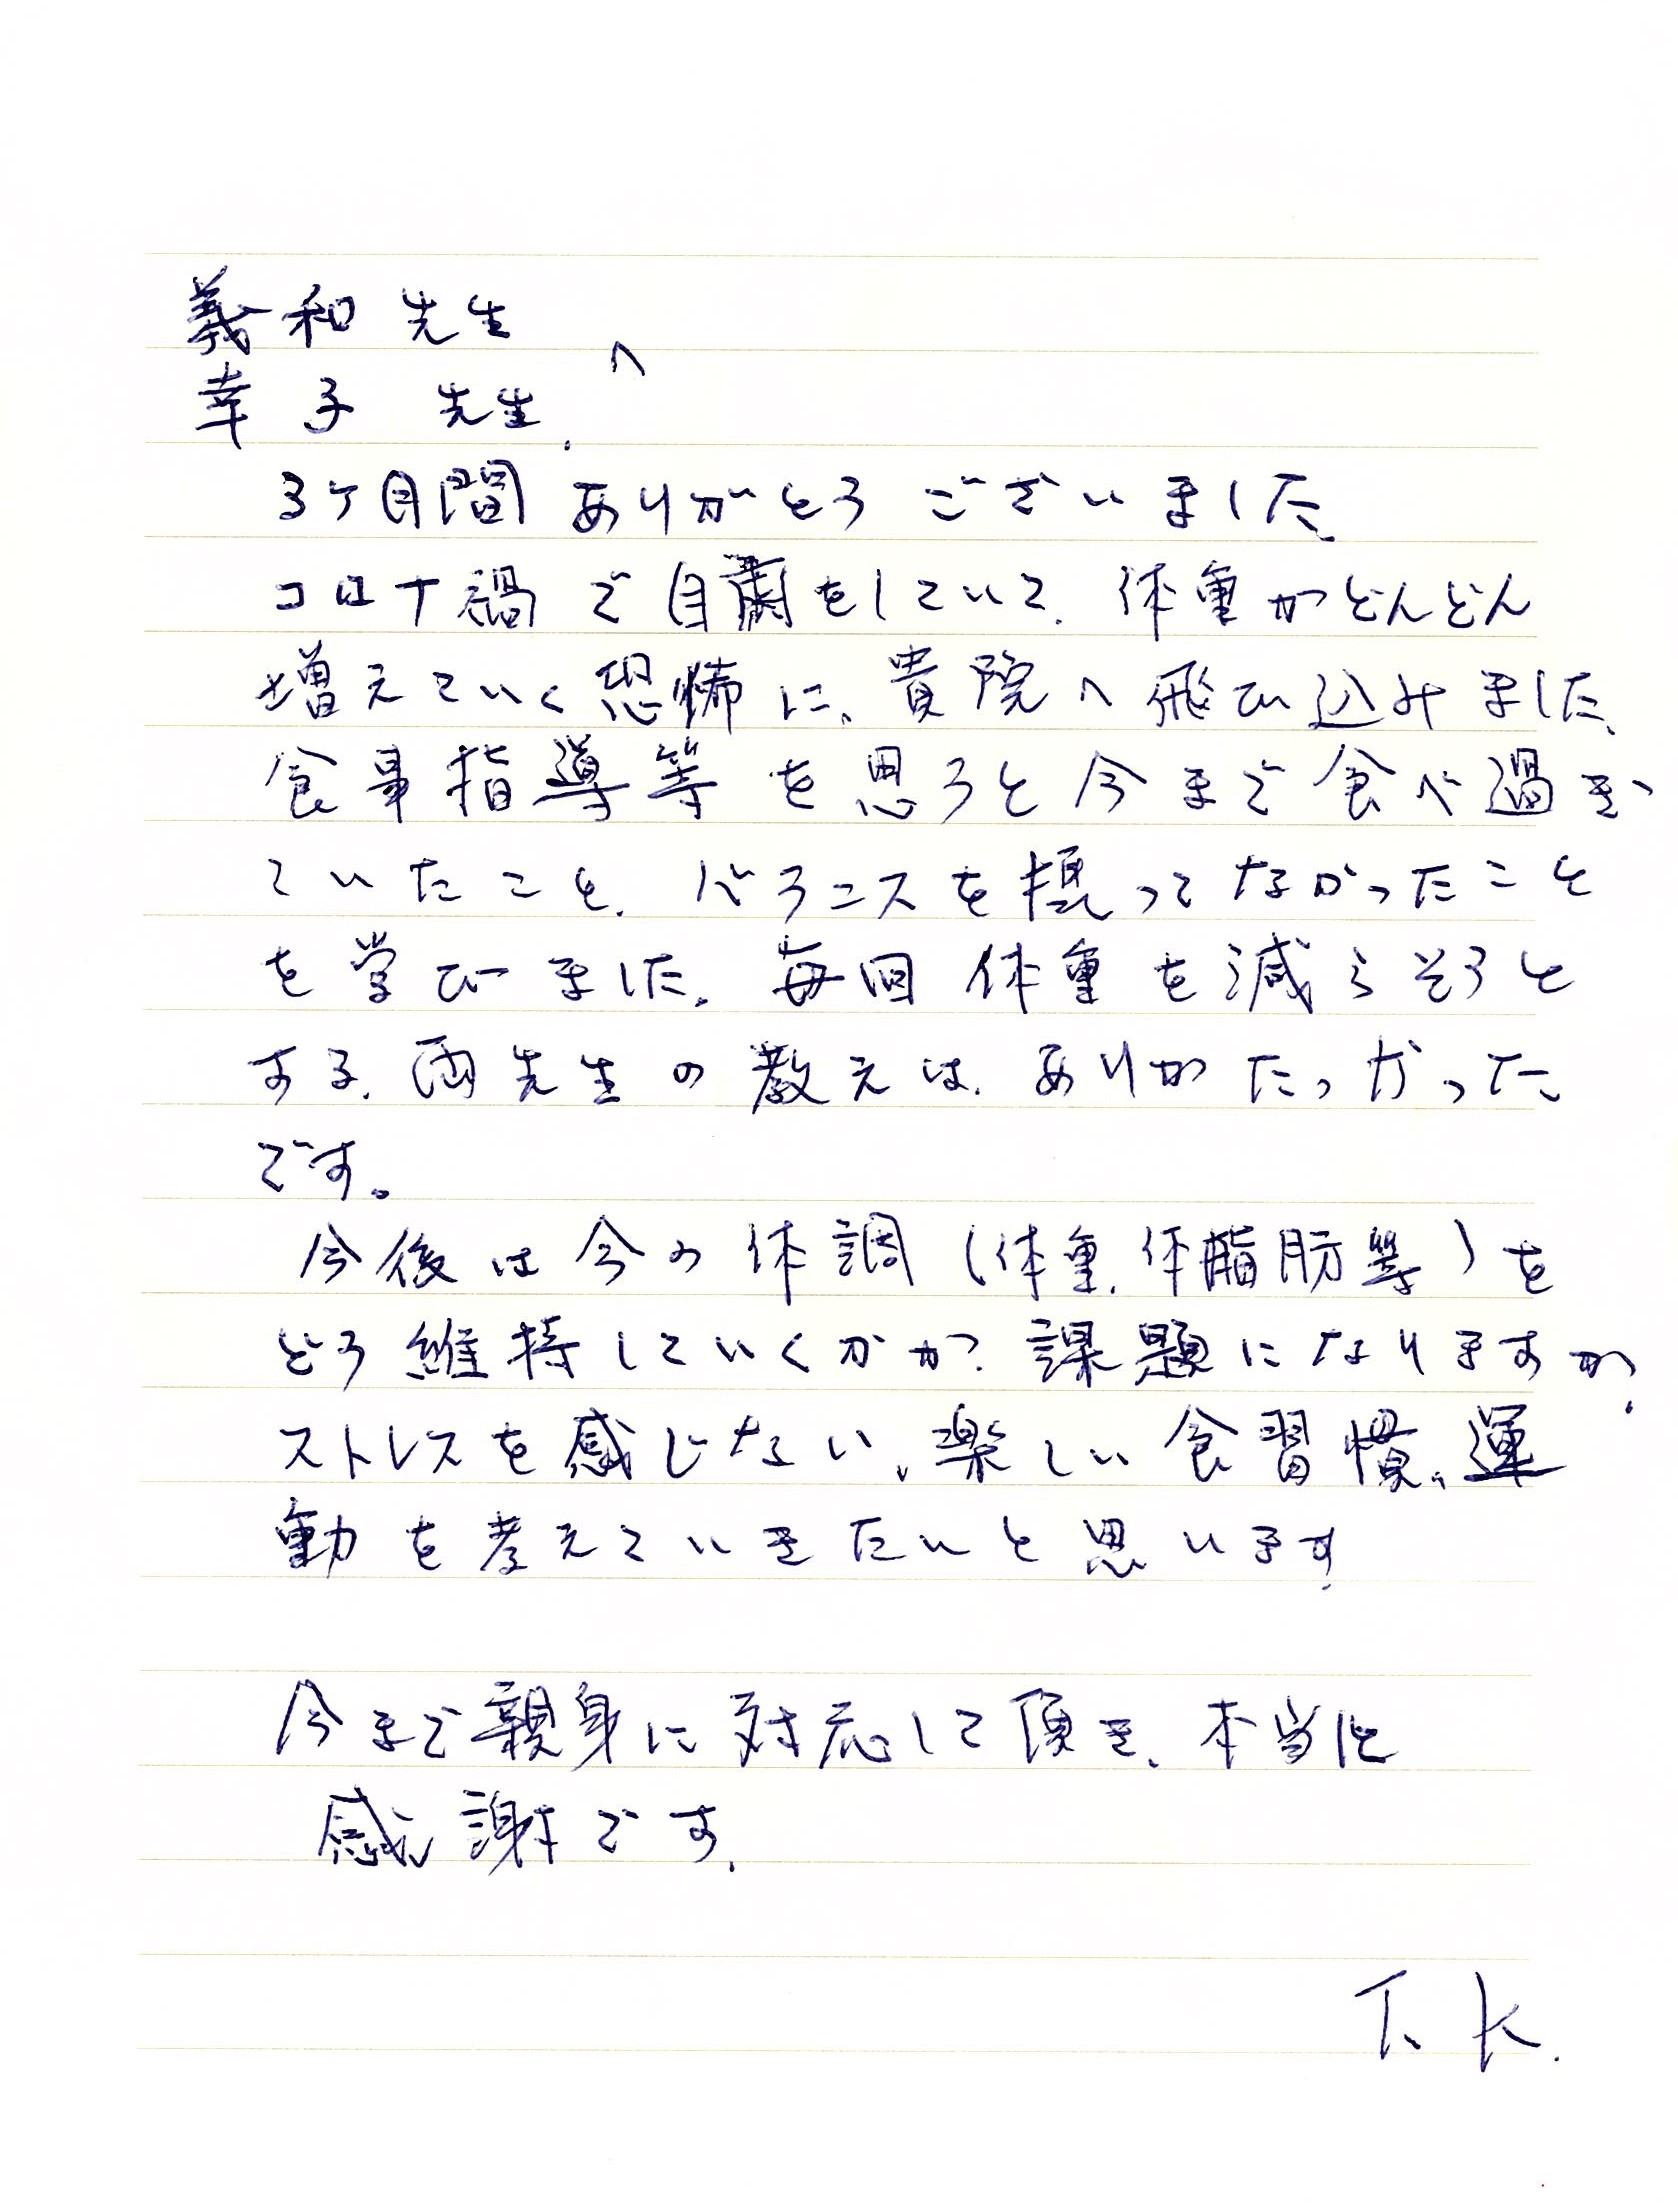 義和先生
へ
幸子先生.
3ヶ月間ありがとうございました。
コロナ禍で自粛をしていて、体重がどんどん
増えていく恐怖に、貴院へ飛び込みました。
食事指導等を思うと今まで食べ過ぎ
ていたこと、バランスを摂ってなかったこと
を学びました。毎回体重を減らそうと
する、両先生の教えは、ありがたっかった
です。
今後は今の体調(体重、体脂肪等)を
どう維持していくかが課題になりますが、
ストレスを感じない、楽しい食習慣、運
動を考えていきたいと思います。
今まで親身に対応して頂き、本当に
感謝です。
T. K.